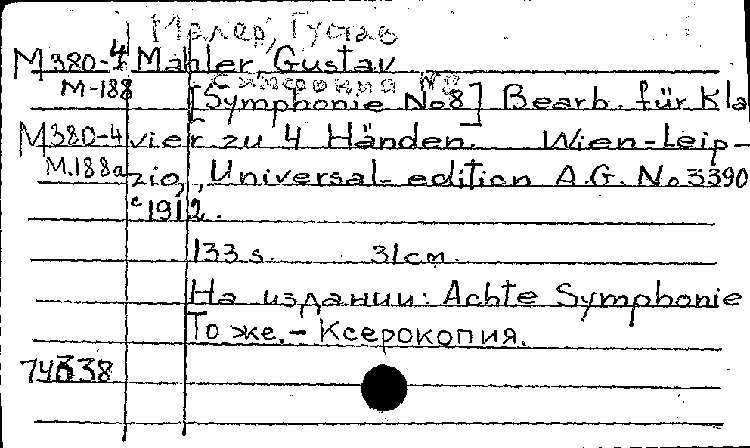 Малер, Густав
М380-4 Mahler Gustav
Симфония №8
М-188 [Symphonie No8] Bearb. für Kla
М380-4 vier zu 4 Händen. Wien-Leip-
М.188а zig, Universal-edition A.G. No 3390
c1912.
133 s. 31 см.
На издании: Achte Symphonie
То же. - Ксерокопия.
74338